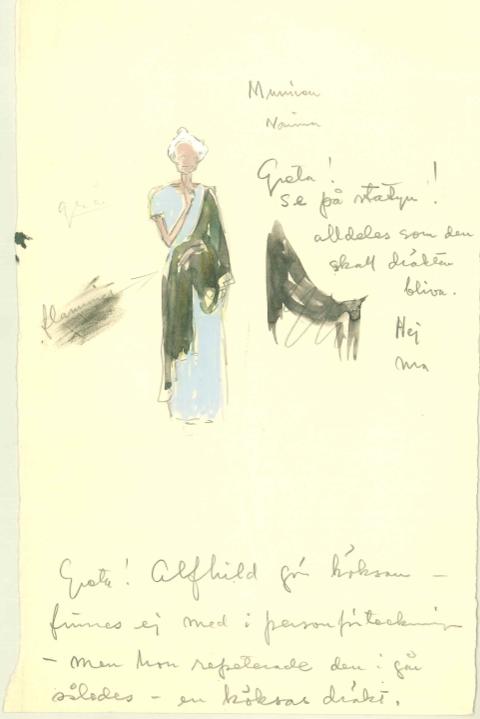 Greta!
Se på statyn!
alldeles som den
skall dräkten
bliva.
Hej
Greta! Alfhild gör köksan –
finnes ej med i personförteckning
– men hon repeterade den i går
således – en köksas dräkt.